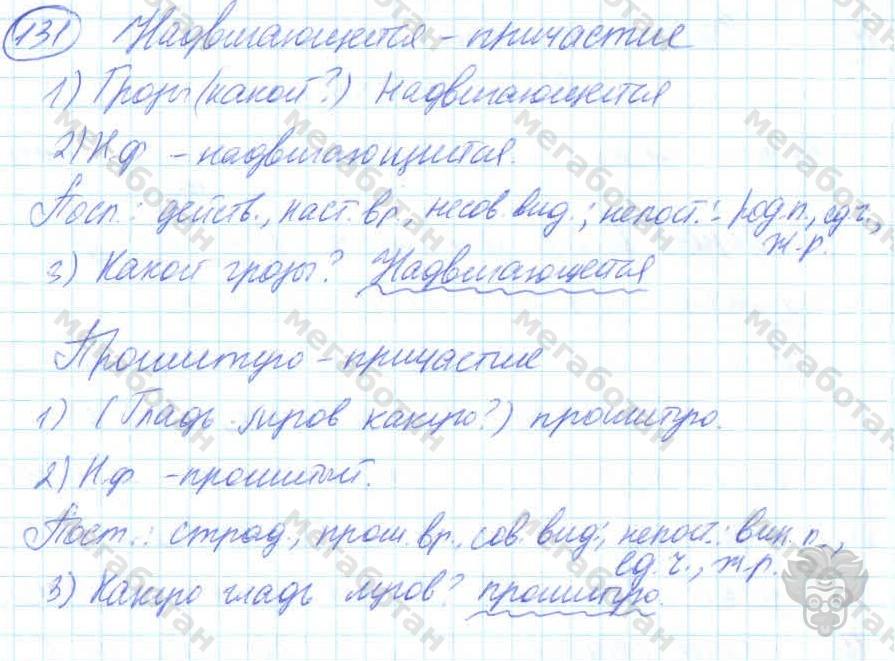 131 Надвигающейся - причастие
1) Грозы (какой?) надвигающейся
2) Н.ф - надвигающийся.
Посп.: действ., наст. вр., несов. вид.; непост.: - род.п., ед.ч.,
ж.р.
3) Какой грозы? Надвигающейся
Прошитую - причастие
1) (Гладь лугов какую?) прошитую.
2) Н.ф - прошитый.
Пост.: страд., прош. вр., сов. вид.; непост.: вин. п.,
ед. ч., ж.р.
3) Какую гладь лугов? прошитую.
мегаботан